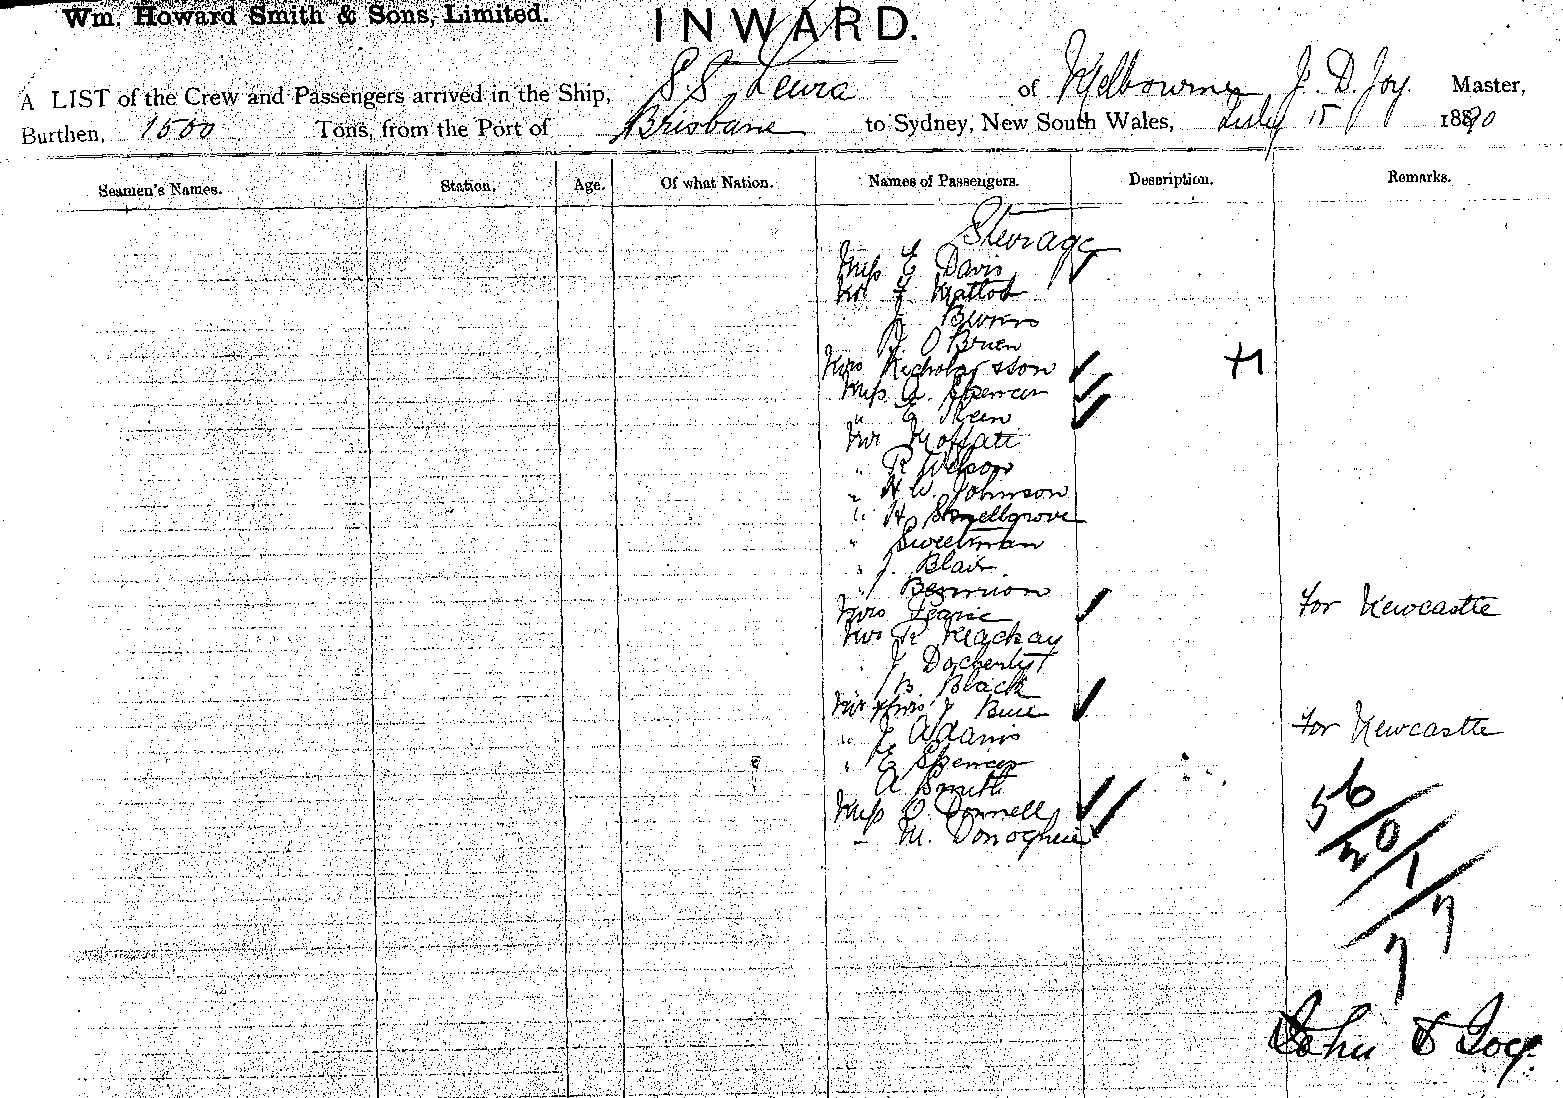 Wm. Howard Smith & Sons, Limited.
INWARD.
A LIST of the Crew and Passengers arrived in the Ship, SS Leura of Melbourne J. D. Joy. Master,
Burthen, 1500 Tons, from the Port of Brisbane to Sydney, New South Wales, July 15 1890
Seamen's Names. Station. Age. Of what Nation. Names of Passengers. Description. Remarks.
Steerage
Miss E Davis
Mr
J
J O'Brien
Mrs
Miss A. Spencer
" E
Mr Moffatt
" R Wilson
" H W. Johnson
" H Snellgrove
" Sweetman
" J. Blair
" Bennion
Mrs For Newcastle
Mr R Mackay
J Docherty
B. Black
Mr & Mrs J
" J Adams For Newcastle
" E Spencer
A Smith
Miss O. Donnell
M. Donoghue
56
20/1
7
7
John D Joy.